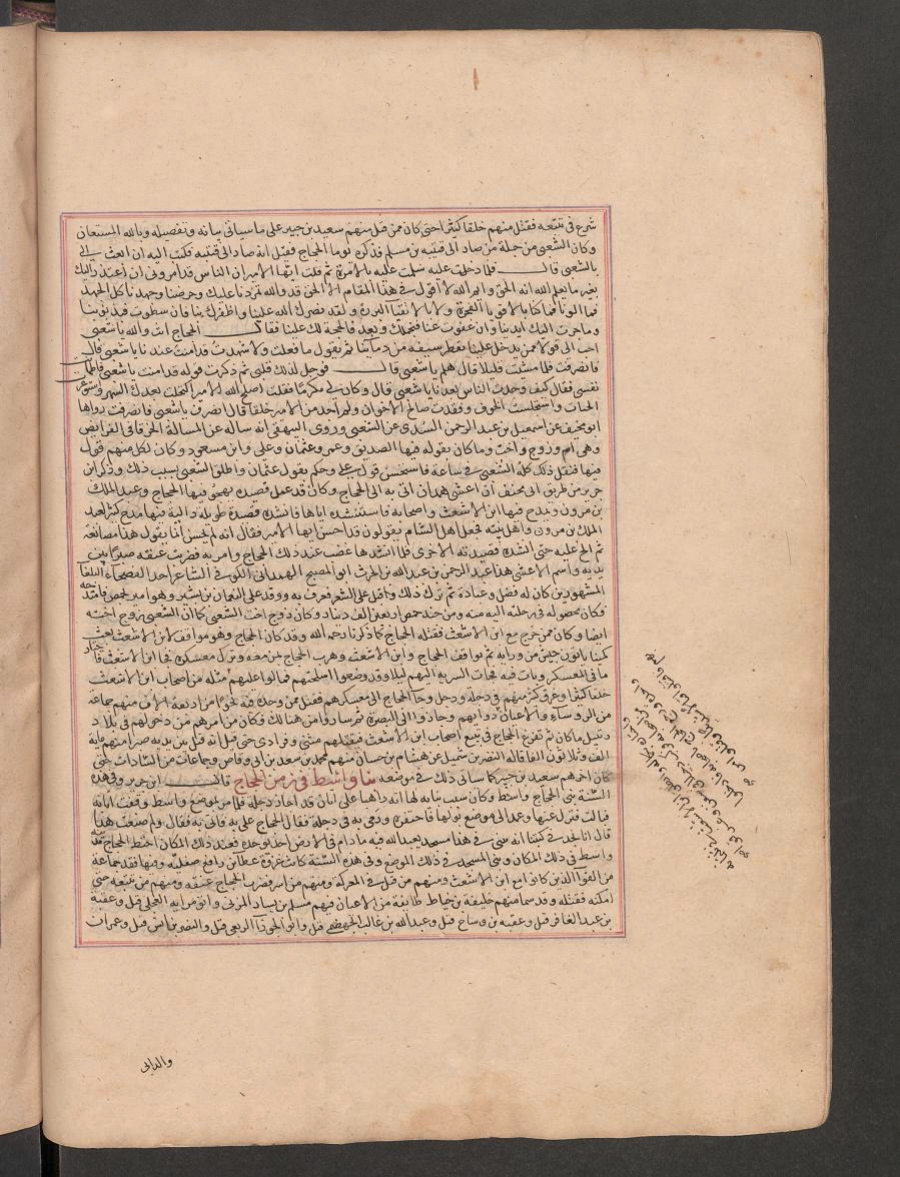 شرع في تتبعه فقتل منهم خلقا كثيرا حتى كان ممن قتل منهم سعيد بن جبير على ما سياتي بيانه وتفصيله وبالله المستعان
وكان الشعبي من جملة من صار الى قتيبة بن مسلم فذكره يوما الحجاج فقيل انه صار الى قتيبة فكتب اليه ان ابعث الي
بالشعبي قال فلما دخلت عليه سلمت عليه بالامرة ثم قلت ايها الامير ان الناس قد امروني ان اعتذر اليك
بغير ما يعلم الله انه الحق وايم الله لا اقول في هذا المقام الا الحق قد والله تمردنا عليك وحرضنا وجهدنا كل الجهد
فما الونا فما كنا بالاقويا الفجرة ولا بالاتقيا البررة ولقد نصرك الله علينا واظفرك بنا فان سطوت فبذنوبنا
وما جرت اليك ايدينا وان عفوت عنا فبحلمك وبعد فالحجة لك علينا فقال الحجاج انت والله يا شعبي
احب الى قولا ممن يدخل علينا يقطر سيفه من دمائنا ثم يقول ما فعلت ولا شهدت قد امنت عندنا يا شعبي قال
فانصرفت فلما مشيت قليلا قال هلم يا شعبي قال فوجل لذلك قلبي ثم ذكرت قوله قد امنت يا شعبي فاطمانت
نفسي فقال كيف وجدت الناس بعدنا يا شعبي قال وكان لي مكرما فقلت اصلح الله الامير اكتحلت بعدك السهر واستوعرت
الجناب واستحلست الخوف وفقدت صالح الاخوان ولم اجد من الامير خلفا قال انصرف يا شعبي فانصرفت رواها
ابو مخنف عن اسمعيل بن عبد الرحمن السدي عن الشعبي وروى البيهقي انه ساله عن المسالة الخرقا في الفرايض
وهي ام وزوج واخت وما كان يقوله فيها الصديق وعمر وعثمان وعلي وابن مسعود وكان لكل منهم قول
فيها فنقل ذلك كله الشعبي في ساعة فاستحسن قول علي وحكم بقول عثمان واطلق الشعبي بسبب ذلك وذكر ابن
جرير من طريق ابي مخنف ان اعشى همدان اتي به الى الحجاج وكان قد عمل قصيدة يهجو فيها الحجاج وعبد الملك
بن مروان ويمدح فيها ابن الاشعث واصحابه فاستنشده اياها فانشده قصيدة طويلة دالية فيها مدح كثير لعبد
الملك بن مروان واهل بيته فجعل اهل الشام يقولون قد احسن ايها الامير فقال انه لم يحسن انما يقول هذا مصانعة
ثم الح عليه حتى انشده قصيدته الاخرى فلما انشدها غضب عند ذلك الحجاج وامر به فضربت عنقه صبرا بين
يديه واسم الاعشى هذا عبد الرحمن بن عبد الله بن الحرث ابو المصبح الهمداني الكوفي الشاعر احد الفصحاء البلغا
المشهورين كان له فضل وعبادة ثم ترك ذلك واقبل على الشعر فعرف به ووفد على النعمان بن بشير وهو امير بحمص فامتدحه
فكان محصوله في رحلته اليه منه ومن جند حمص اربعين الف دينار وكان زوج اخت الشعبي كما ان الشعبي زوج اخته
ايضا وكان ممن خرج مع ابن الاشعث فقتله الحجاج كما ذكرنا رحمه الله وقد كان الحجاج وهو مواقف لابن الاشعث بعث
كمينا ياتون جيش من ورايه ثم تواقف الحجاج وابن الاشعث وهرب الحجاج بمن معه وترك معسكره فجا ابن الاشعث فاحتاز
ما في المعسكر وبات فيه فجات السرية اليهم ليلا وقد وضعوا اسلحتهم فمالوا عليهم ميلة من اصحاب ابن الاشعث
خلقا كثيرا وغرق كثير منهم في دجلة ودجيل وجا الحجاج الى معسكرهم فقتل ممن وجد فيه نحوا من اربعة الاف منهم جماعة
من الروساء والاعيان
رتبيل ما كان ثم تفرغ الحجاج في تتبع اصحاب ابن الاشعث فيقتلهم مثنى وفرادى حتى قيل انه قتل بين يديه صبرا منهم مائة
الف وثلاثون الفا قاله النضر بن شميل عن هشام بن حسان منهم محمد بن سعد بن ابي وقاص وجماعات من السادات حتى
كان اخرهم سعيد بن جبير كما سياتي ذلك في موضعه بنا واسط في زمن الحجاج قال ابن جرير وفي هذه
السنة بنى الحجاج واسط وكان سبب بنايه لها انه راى راهبا على اتان قد اجاز دجلة فلما مر بموضع واسط وقفت اتانه
فبالت فنزل عنها وعمد الى موضع بولها فاحتفره ورمى به في دجلة فقال الحجاج علي به فاتي به فقال ولم صنعت هذا
قال انا نجد في كتبنا انه يبنى في هذا مسجد يعبد الله فيه ما دام في الارض احد يوحده فعند ذلك اختط الحجاج مدينة
واسط في ذلك المكان وبنى المسجد في ذلك الموضع وفي هذه السنة كانت غزوة عطا بن رافع صقلية وفيها فقد جماعة
من القرا الذين كانوا مع ابن الاشعث ومنهم من قتل في المعركة ومنهم من اسر فضرب الحجاج عنقه ومنهم من تتبعه حتى
امكنه فقتله وقد سما منهم خليفة بن خياط طائفة من الاعيان فيهم مسلم بن يسار المزني وابو مرايه العجلي قتل وعقبة
بن عبد الغافر قتل وعقبه بن وساج قتل وعبد الله بن غالب الجهضمي قتل وابو الجوزا الربعي قتل والنضر بن انس قتل وعمران
والد ابي